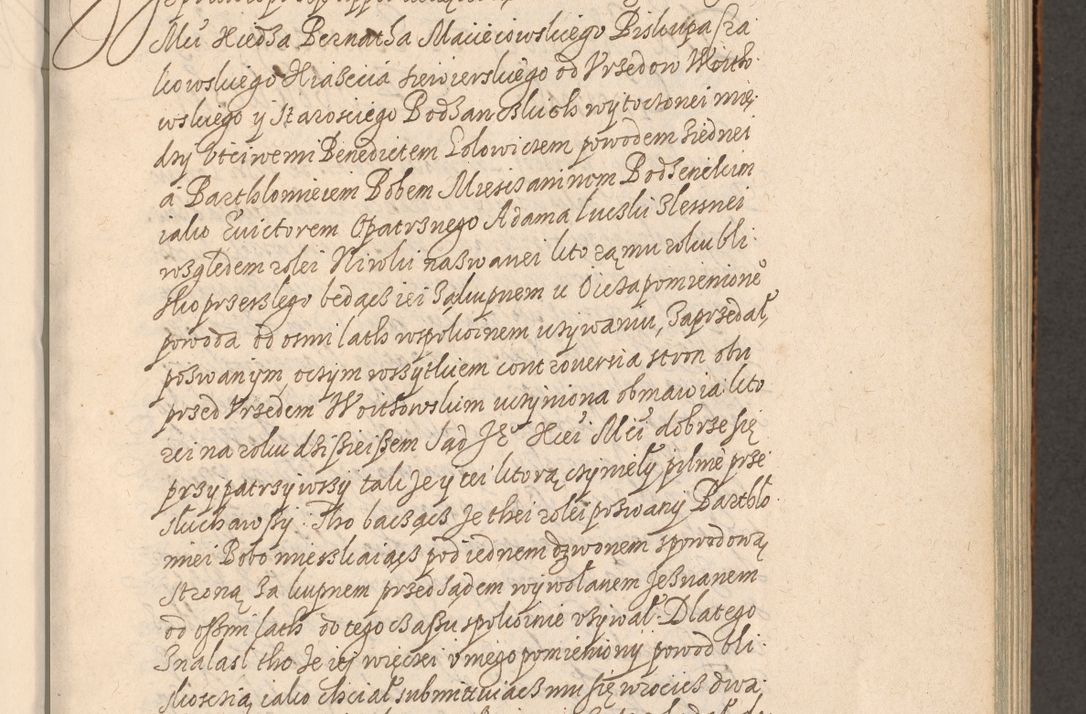 Mci Xiedza Bernatha Macieiowskiego Biskupa Kra
kowskiego Xiazecia Siewierskiego od Vrzedow Woito
wskiego y Starosciego Bodzanczskich wytoczonei mię
dzy Vtciwemi Benedictem Lolowiczem powodem z iednei
á Barthlomieiem Bobem Miesczaninem Bodzenckim
iako Evictorem Opatrznego Adama Lucski z lessnei
względem rolei Niwki nazwanei ktorą mu rokubli
sko przeszlego bedącz iei zakupnem u Oicza pomienione°
powoda od osmi lath wspokoinem uzywaniu, Zaprzedał,
pozwanym, oczym wszytkiem controuersia stron obu
przed Vrzedem Woitowskim uczyniona obmawia kto
rei na roku dzisieiszem Sąd Je° Xcei Mci dobrze się
przypatrzywszy tak Je y tei ktorą czyniely pilnie prze
słuchawszy. Tho bacząc Je thei rolei pozwany Barthlo
miei Bobo mieszkaiącz pod iednem dzwonem spowodową
stroną Zakupnem przed sądem wywołanem Jeznanem
od oszmi lath do tego czassu spokoinie vzywał Dlatego
Znalasł tho Je iej więczei v niego pomieniony powod bli
skoscią, iako chciał submituiącz mu się wrocicz dwa,